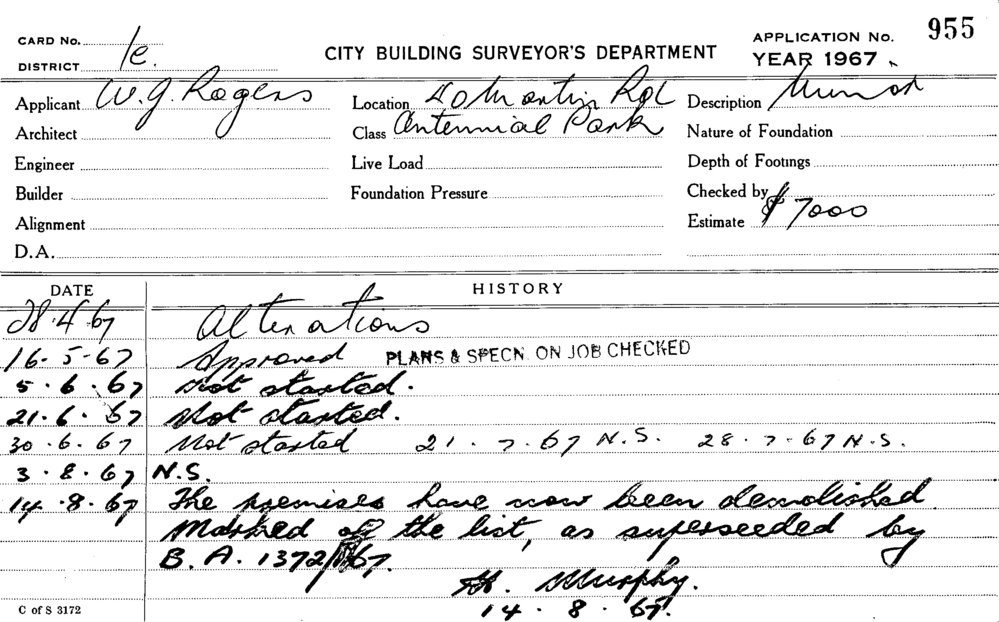 CARD No.
DISTRICT 1e.
CITY BUILDING SURVEYOR'S DEPARTMENT
APPLICATION No. 955
YEAR 1967
Applicant W.J. Rogers
Location 40 Martin Rd
Description Minor
Architect
Class Centennial Park
Nature of Foundation
Engineer
Live Load
Depth of Footings
Builder
Foundation Pressure
Checked by
Alignment
Estimate $7000
D.A.
DATE HISTORY
28.4.67 Alterations
16-5-67 Approved PLANS & SPECN. ON JOB CHECKED
5.6.67 Not started.
21.6.67 Not started.
30.6.67 Not started 21.7.67 N.S. 28.7.67 N.S.
3.8.67 N.S.
14.8.67 The premises have now been demolished.
Marked of the list, as superseeded by
B.A. 1372/67.
Murphy.
14.8.67.
C of S 3172